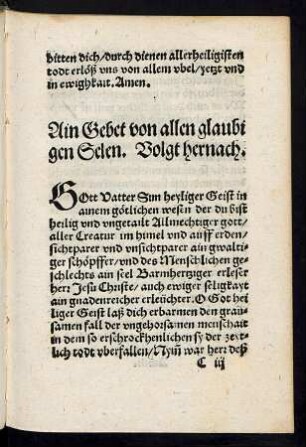 bitten dich/durch dienen allerheiligisten
todt erlöß vns von allem vbel/yetzt vnd
in ewighkait. Amen.
Ain Gebet von allen glaubi
gen Selen. Volgt hernach.
GOtt Vatter Sun heyliger Geist in
ainem götlichen wesen der du bist
heilig vnd vngetailt Allmechtiger gott/
aller Creatur im himel vnd auff erden/
sichtparer vnd vnsichtparer ain gwalti-
ger schöpffer/vnd des Menschlichen ge-
schlechts ain seel Barmhertziger erleser
herr Jesu Christe/ auch ewiger seligkayt
ain gnadenreicher erleüchter. O Got hei
liger Geist laß dich erbarmen den grau-
samen fall der vngehorsamen menschait
in dem so erschrockhenlichen sy der zeyt-
lich todt vberfallen/Nym̃ war herr deß
C iij